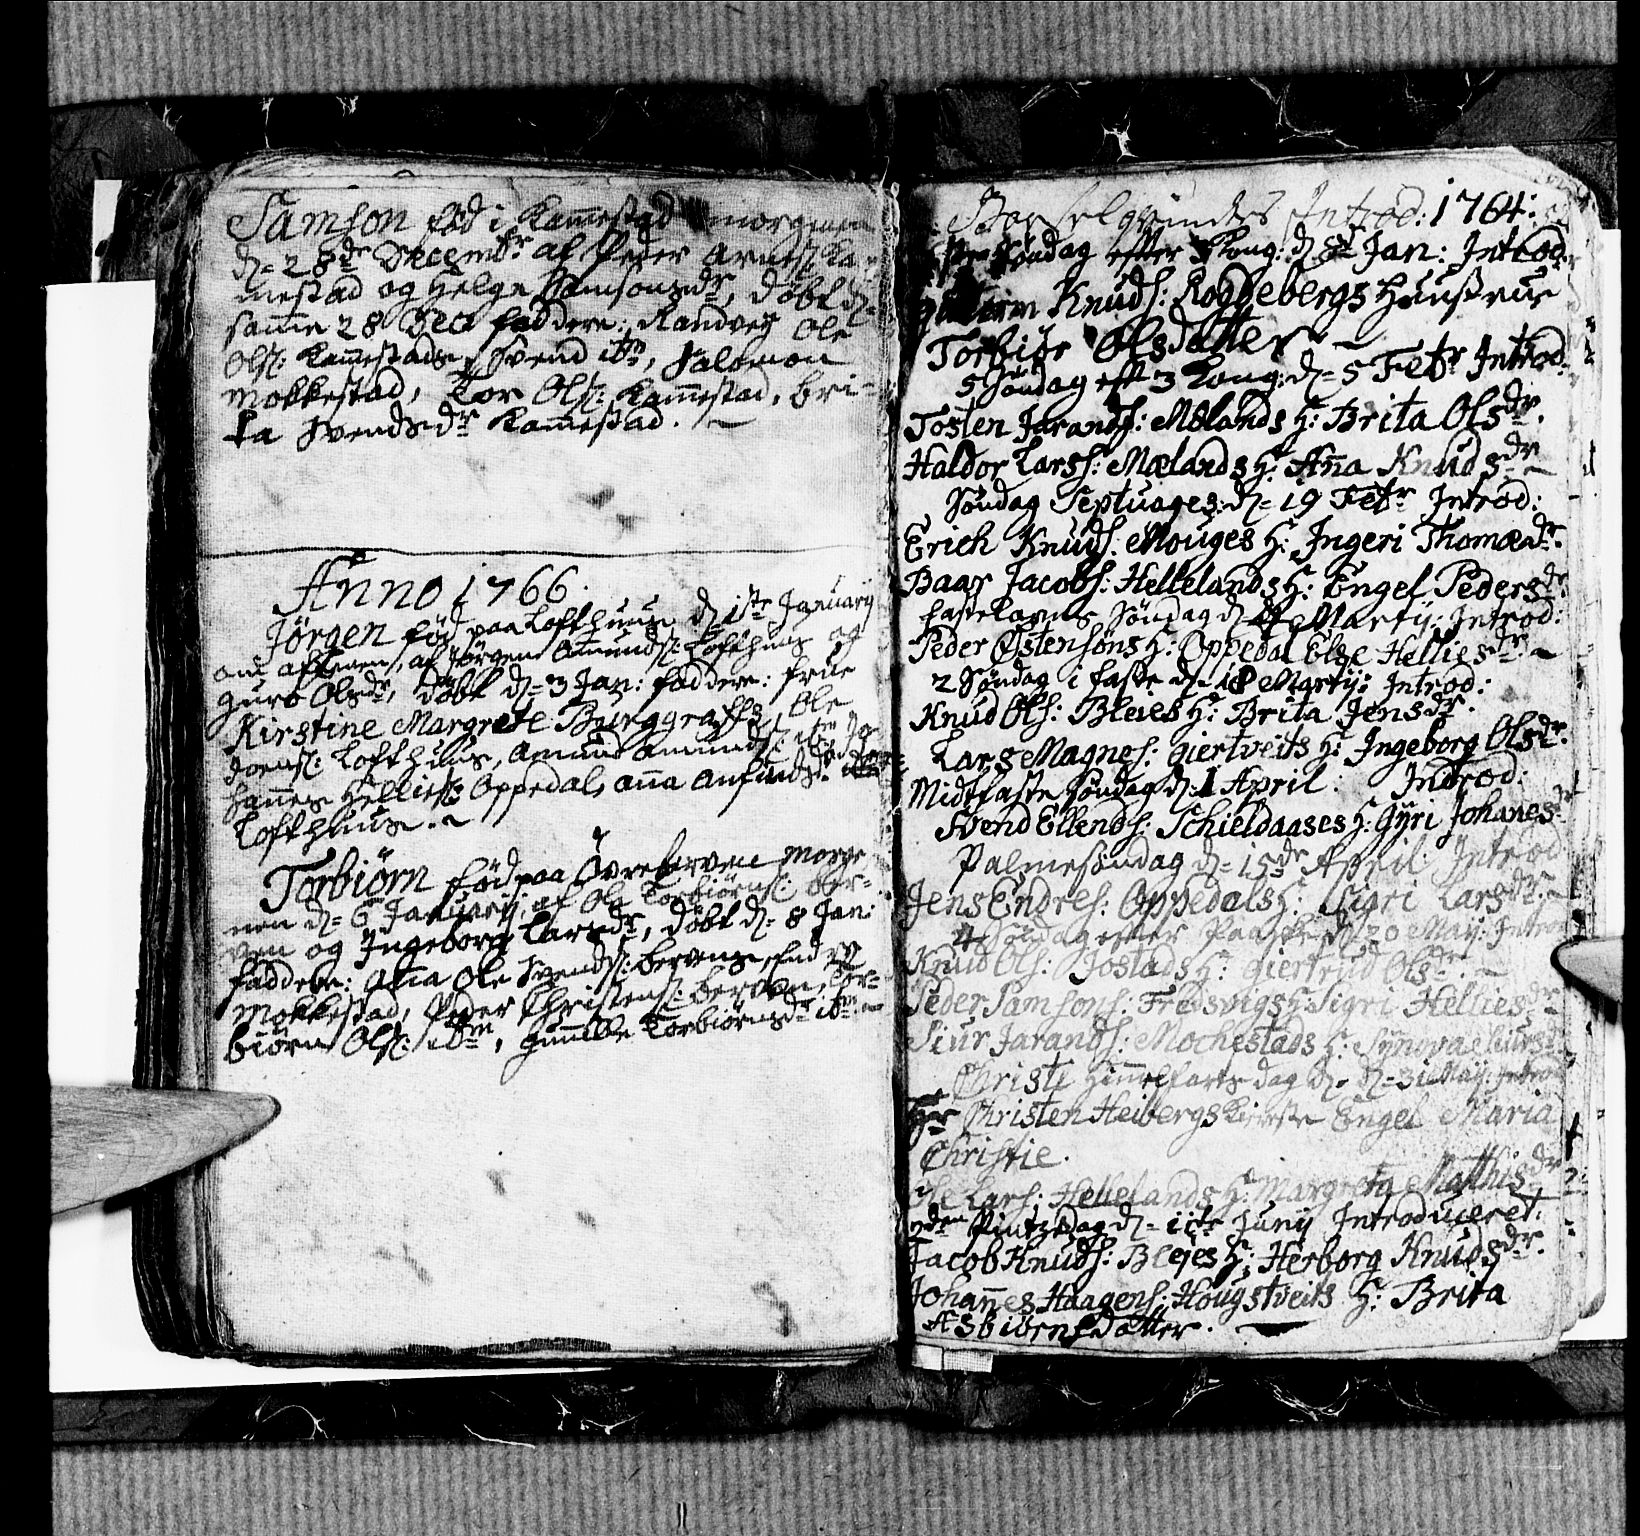 Samson fød i Kammestad morgenen
d= 28de Decembr af Peder Arnes: Ka-
mestad og Helge Samsonsdr, døbt d=
samme 28 Dec faddere: Randveg Ole
Ols: Kamestads, Svend ibm, Salomon
Mokkestad, Tor Ols: Kamestad, Bri-
ta Svendsdr Kamestad.
Anno 1766.
Jørgen fød paa Lofthuus d 1ste January
om aftenen, af Jørgen Amunds: Lofthuus og
Guro Olsdr, døbt d= 3 Jan: faddere: frue
Kirstine Margrete Borggraffs, Ole
Joens: Lofthuus, Amund Amunds: ibm Jo-
hannes Hellies: Oppedal, Anna Anfindsdr
Lofthuus.
Torbiørn fød paa Øvre Berven Morge
nen d= 6 January, af Ole Torbiørns: Ber-
ven og Ingeborg Larsdr, døbt d= 8 Jan:
faddere: Ole Svends: Bervens,
Mokkestad, Peder Christens: Berven, Tor-
biørn Ols: ibm, Gunilde Torbiørnsdr ibm
Barselqvinders Introd: 1764:
Søndag efter 3 Kong: d 8de Jan: Introd
Knuds: Rogdebergs Hustrue
Torbiør Olsdatter
5 Søndag eft 3 Kong: d= 5 Febr Introd:
Tosten Jarands: Mølands H: Brita Olsdr.
Haldor Larss: Mælands H: Anna Knudsdr
Søndag Septuages: d= 19 Febr Introd:
Erich Knuds: Mouges H: Ingeri Thomædr.
Baar Jacobs: Hellelands H: Engel Pedersdr
Fastelavns Søndag d= 4 Martij: Introd:
Peder Østensøns H: Oppedal Else Helliesdr.
2 Søndag i faste d= 18 Martij: Introd:
Knud Ols: Bleies H: Brita Jensdr.
Lars Magnes: Giertveits H: Ingeborg Olsdr.
Midtfaste Søndag d: 1 April: Introd:
Svend Ellends: Schieldaases H: Gyri Johanesdr
Palmesøndag d= 15de April: Introd
Jens Endres: Oppedals H: Sigri Larsdr.
4 Søndag efter Paaske d 20 May: Introd
Knud Ols: Jostads H: Giertrud Olsdr
Peder Samsons: Fresvigs H: Sigri Helliesdr
Siur Jarands: Mochestads H: Synova Siursdr
Christi Himmelfarts dag d= 31 May: Introd
Hr Christen Heibergs Kierste Engel Maria
Christie.
Ole Lars: Hellelands H: Margreta Mathisdr
2den Pintzedag d= 11te Junij Introduceret:
Jacob Knuds: Blejes H: Herborg Knudsdr.
Johannes Haagens: Hougstveits H: Brita
Asbiørnsdatter.